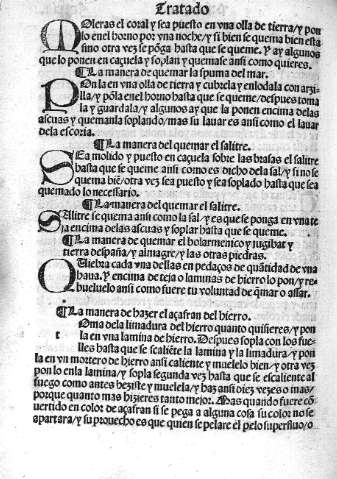 Tratado
MOleras el coral y sea puesto en vna olla de tierra/y pon
lo en el horno por vna noche/y si bien se quema bien esta
sino otra vez se põga hasta que se queme. Y ay algunos
que lo ponen en caçuela y soplan y quemase ansi como quieres.
¶La manera de quemar la spuma del mar.
POnla en vna olla de tierra y cubrela y enlodala con arzi
lla/y põla enel horno hasta que se queme/despues toma
la y guardala/y algunos ay que la ponen encima delas
ascuas y quemanla soplando/mas su lauar es ansi como el lauar
dela escoria.
¶La manera del quemar el salitre.
SEa molido y puesto en caçuela sobre las brasas el salitre
hasta que se queme ansi como es dicho dela sal/y si no se
quema biẽ/otra vez sea puesto y sea soplado hasta que sea
quemado lo necessario.
¶La manera del quemar el salitre.
SAlitre se quema ansi como la sal/y es que se ponga en vna te
ja encima delas ascuas y soplar hasta que se queme.
¶La manera de quemar el bolarmenico y jugibat y
tierra despaña/y almagre/y las otras piedras.
QUiebra cada vna dellas en pedaços de quãtidad de vna
haua. Y encima de teja o laminas de hierro lo pon/y re
bueluelo ansi como fuere tu voluntad de q̃mar o assar.
¶La manera de hazer el açafran del hierro.
tOma dela limadura del hierro quanto quisieres/y pon
la en vna lamina de hierro. Despues sopla con los fue
lles hasta que se caliẽte la lamina y la limadura/y pon
la en vn mortero de hierro ansi caliente y muelelo bien/y otra vez
pon lo enla lamina/y sopla segunda vez hasta que se escaliente al
fuego como antes heziste y muelela/y haz ansi diez vezes o mas/
porque quanto mas hizieres tanto mejor. Mas quando fuere cõ
uertido en color de açafran si se pega a alguna cosa su color no se
apartara/y su prouecho es que quien se pelare el pelo superfluo/o